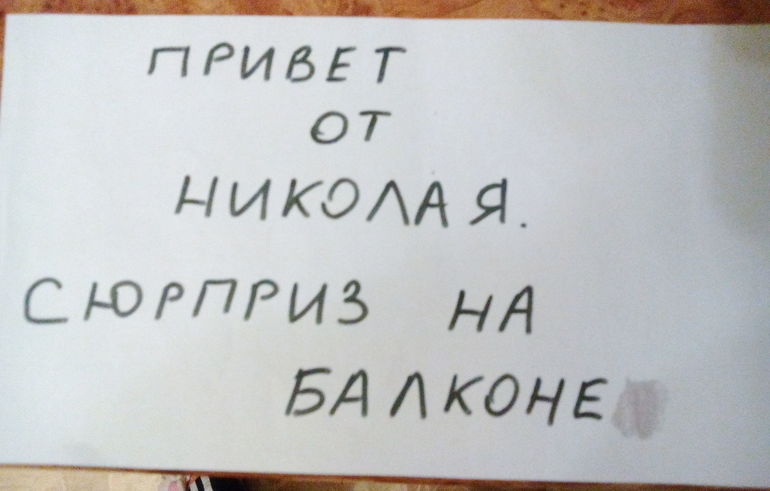 ПРИВЕТ
ОТ
НИКОЛАЯ.
СЮРПРИЗ НА
БАЛКОНЕ